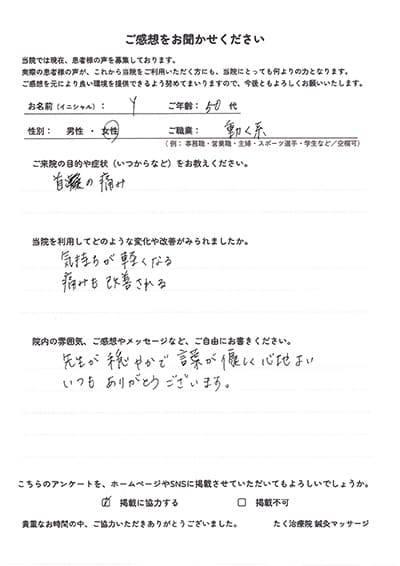 ご感想をお聞かせください
当院では現在、患者様の声を募集しております。
実際の患者様の声が、これから当院をご利用いただく方にも、当院にとっても何よりの力となります。
ご感想を元により良い環境を提供できるよう努めてまいりますので、今後ともよろしくお願いいたします。
お名前（イニシャル）： Y ご年齢： 50 代
性別： 男性 ・ 女性 ご職業： 動く系
（ 例： 事務職・営業職・主婦・スポーツ選手・学生など／空欄可）
ご来院の目的や症状（いつからなど）をお教えください。
首の痛み
当院を利用してどのような変化や改善がみられましたか。
気持ちが軽くなる
痛みも改善される
院内の雰囲気、ご感想やメッセージなど、ご自由にお書きください。
先生が穏やかで言葉が優しく心地よい
いつもありがとうございます。
こちらのアンケートを、ホームページやSNSに掲載させていただいてもよろしいでしょうか。
☑ 掲載に協力する □ 掲載不可
貴重なお時間の中、ご協力いただきありがとうございました。 たく治療院 鍼灸マッサージ